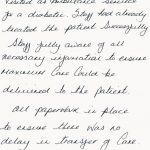 Visited as Ambulance Service
for a diabetic. Staff had already
treated the patient successfully
Staff fully aware of all
necessary information to ensure
Maximum Care could be
delivered to the patient.
All paperwork in place
to ensure there was no
delay in transfer of care.